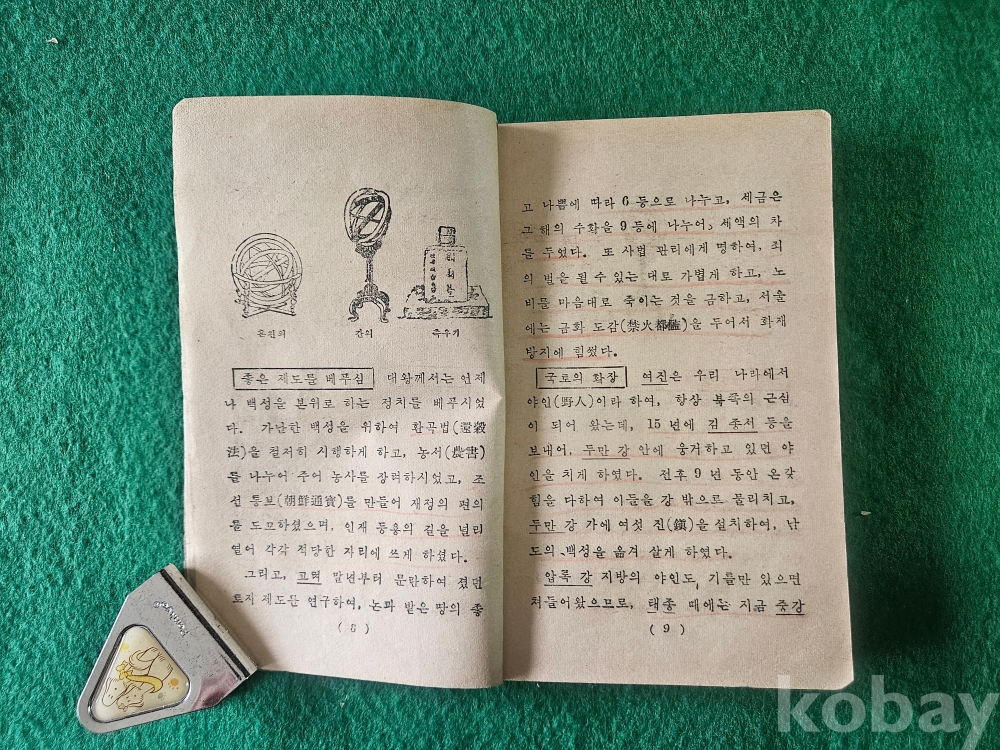 혼천의 간의 측우기
좋은 제도를 베푸심 대왕께서는 언제
나 백성을 본위로 하는 정치를 베푸시었
다. 가난한 백성을 위하여 환곡법(還穀
法)을 철저히 시행하게 하고, 농서(農書)
를 나누어 주어 농사를 장려하시었고, 조
선 통보(朝鮮通寶)를 만들어 재정의 편의
를 도모하셨으며, 인재 등용의 길을 널리
열어 각각 적당한 자리에 쓰게 하셨다.
그리고, 고려 말년부터 문란하여 졌던
토지 제도를 연구하여, 논과 밭은 땅의 좋
( 8 )
고 나쁨에 따라 6 등으로 나누고, 세금은
그 해의 수확을 9 등에 나누어, 세액의 차
를 두었다. 또 사법 관리에게 명하여, 죄
의 벌을 될 수 있는 대로 가볍게 하고, 노
비를 마음대로 죽이는 것을 금하고, 서울
에는 금화 도감(禁火都監)을 두어서 화재
방지에 힘썼다.
국토의 확장 여진은 우리 나라에서
야인(野人)이라 하여, 항상 북쪽의 근심
이 되어 왔는데, 15 년에 김 종서 등을
보내어, 두만 강 안에 웅거하고 있던 야
인을 치게 하였다. 전후 9 년 동안 온갖
힘을 다하여 이들을 강 밖으로 물리치고,
두만 강 가에 여섯 진(鎭)을 설치하여, 남
도의 백성을 옮겨 살게 하였다.
압록 강 지방의 야인도, 기틀만 있으면
쳐들어왔으므로, 태종 때에는 지금 중강
( 9 )
kobay